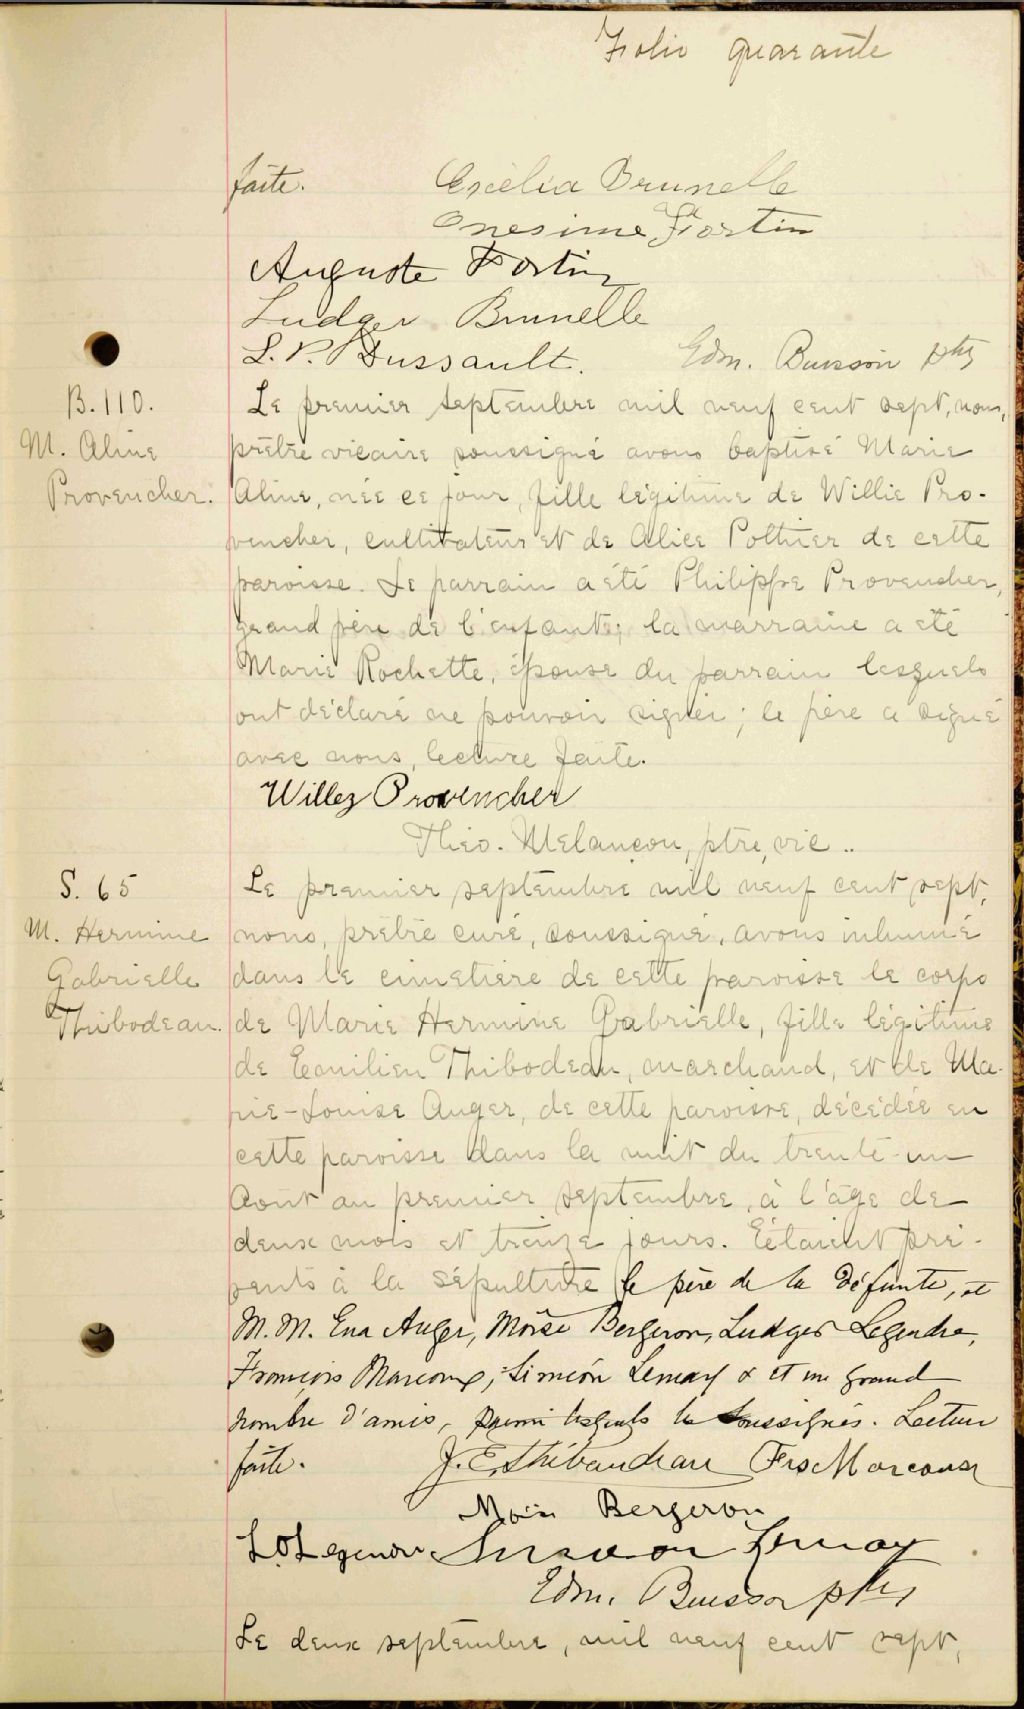 Folio quarante
faite. Exélia Brunelle
Onesime Fortin
Auguste Fortin
Ludger Brunelle
L. P. Dussault. Edm. Buisson ptre
B. 110.
M. Aline
Provencher.
Le premier septembre mil neuf cent sept, nous,
prêtre vicaire soussigné avons baptisé Marie
Aline, née ce jour, fille légitime de Willie Pro-
vencher, cultivateur et de Alice Pothier de cette
paroisse. Le parrain a été Philippe Provencher,
grand père de l'enfant; la marraine a été
Marie Rochette, épouse du parrain lesquels
ont déclaré ne pouvoir signer; le père a signé
avec nous, lecture faite.
Willez Provencher
Théo. Melançon, ptre, vic..
S. 65
M. Hermine
Gabrielle
Thibodeau.
Le premier septembre mil neuf cent sept,
nous, prêtre curé, soussigné, avons inhumé
dans le cimetière de cette paroisse le corps
de Marie Hermine Gabrielle, fille légitime
de Emilien Thibodeau, marchand, et de Ma-
rie-Louise Auger, de cette paroisse, décédée en
cette paroisse dans la nuit du trente-un
Août au premier septembre, à l'âge de
deux mois et treize jours. Étaient pré-
sents à la sépulture le père de la défunte, et
M. M. Auger, Moïse Bergeron, Ludger Legendre,
François Marcoux, Siméon Lemay & et un grand
nombre d'amis, parmi lesquels les soussignés. Lecture
faite. J. E. Thibaudeau Frs Marcoux
Moïse Bergeron
L. O Legendre Simeon Lemay
Edm. Buisson ptre
Le deux septembre, mil neuf cent sept,